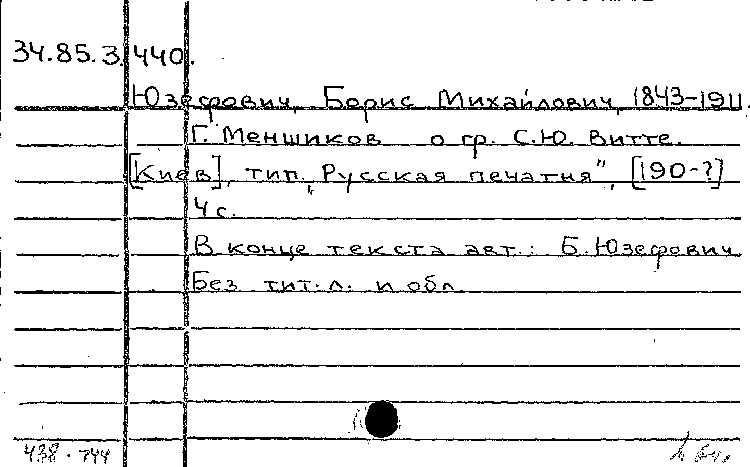 34.85.3.440.
Юзефович, Борис Михайлович, 1843-1911.
Г. Меншиков о гр. С.Ю. Витте.
[Киев], тип. „Русская печатня", [190-?]
4 с.
В конце текста авт.: Б. Юзефович
Без тит. л. и обл.
438 • 744